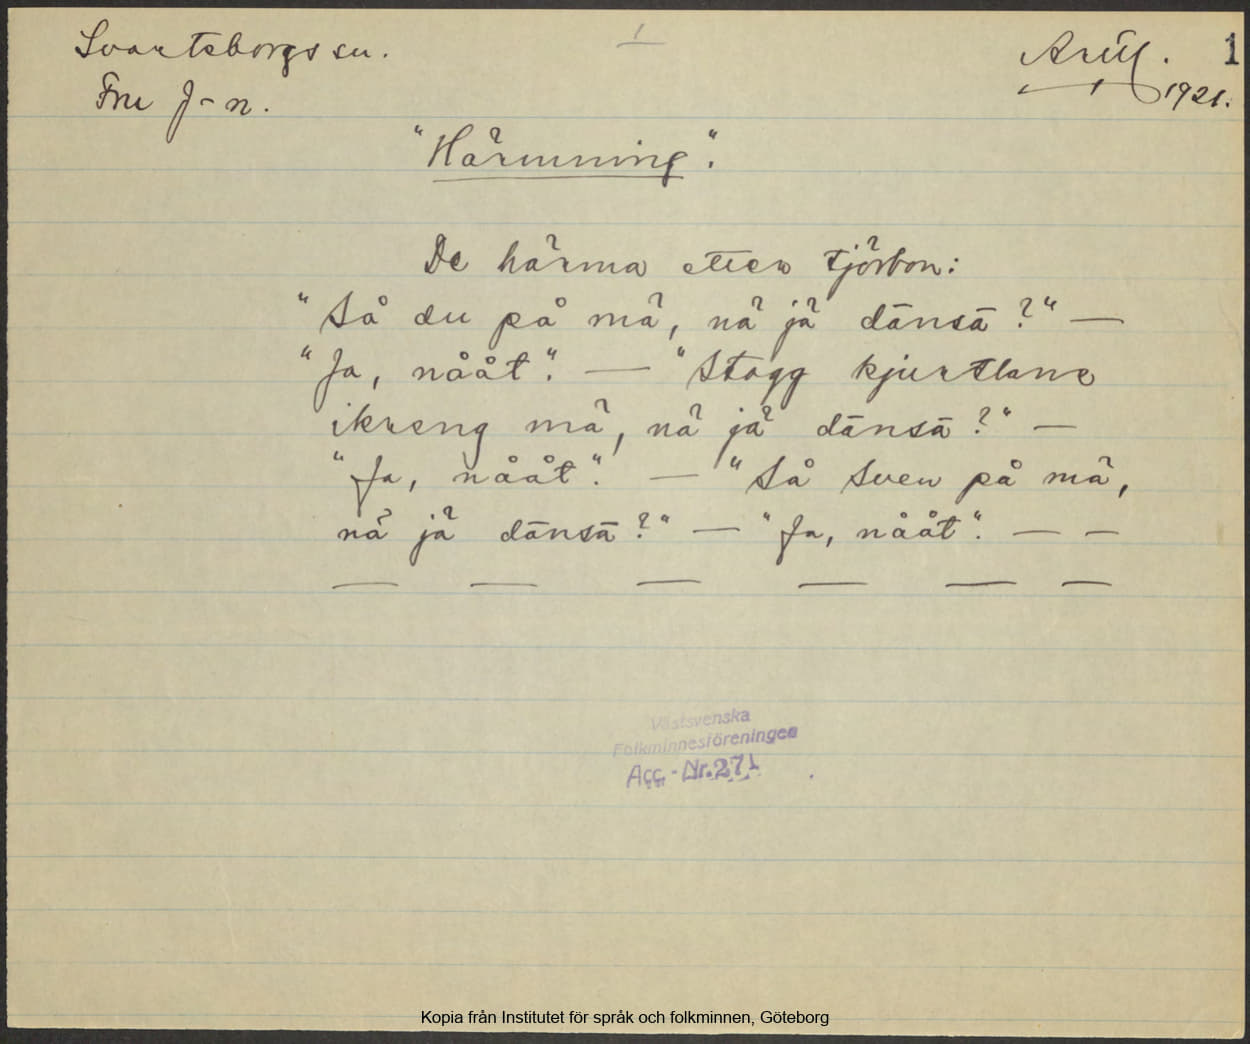 Svarteborgs sn.
1
1
Fru J-n.
1921.
"Härmning".
De härma etter tjörbon:
"Så du på mä, nä jä dänsä?" —
"Ja, nååt". — "Stogg kjurtlane
ikreng mä, nä jä dänsä?" —
"Ja, nååt". — "Så Sven på mä,
nä jä dänsä?" — "Ja, nååt". — —
— — — — — —
Västsvenska
Folkminnesföreningen
Acc.-Nr.271
Kopia från Institutet för språk och folkminnen, Göteborg